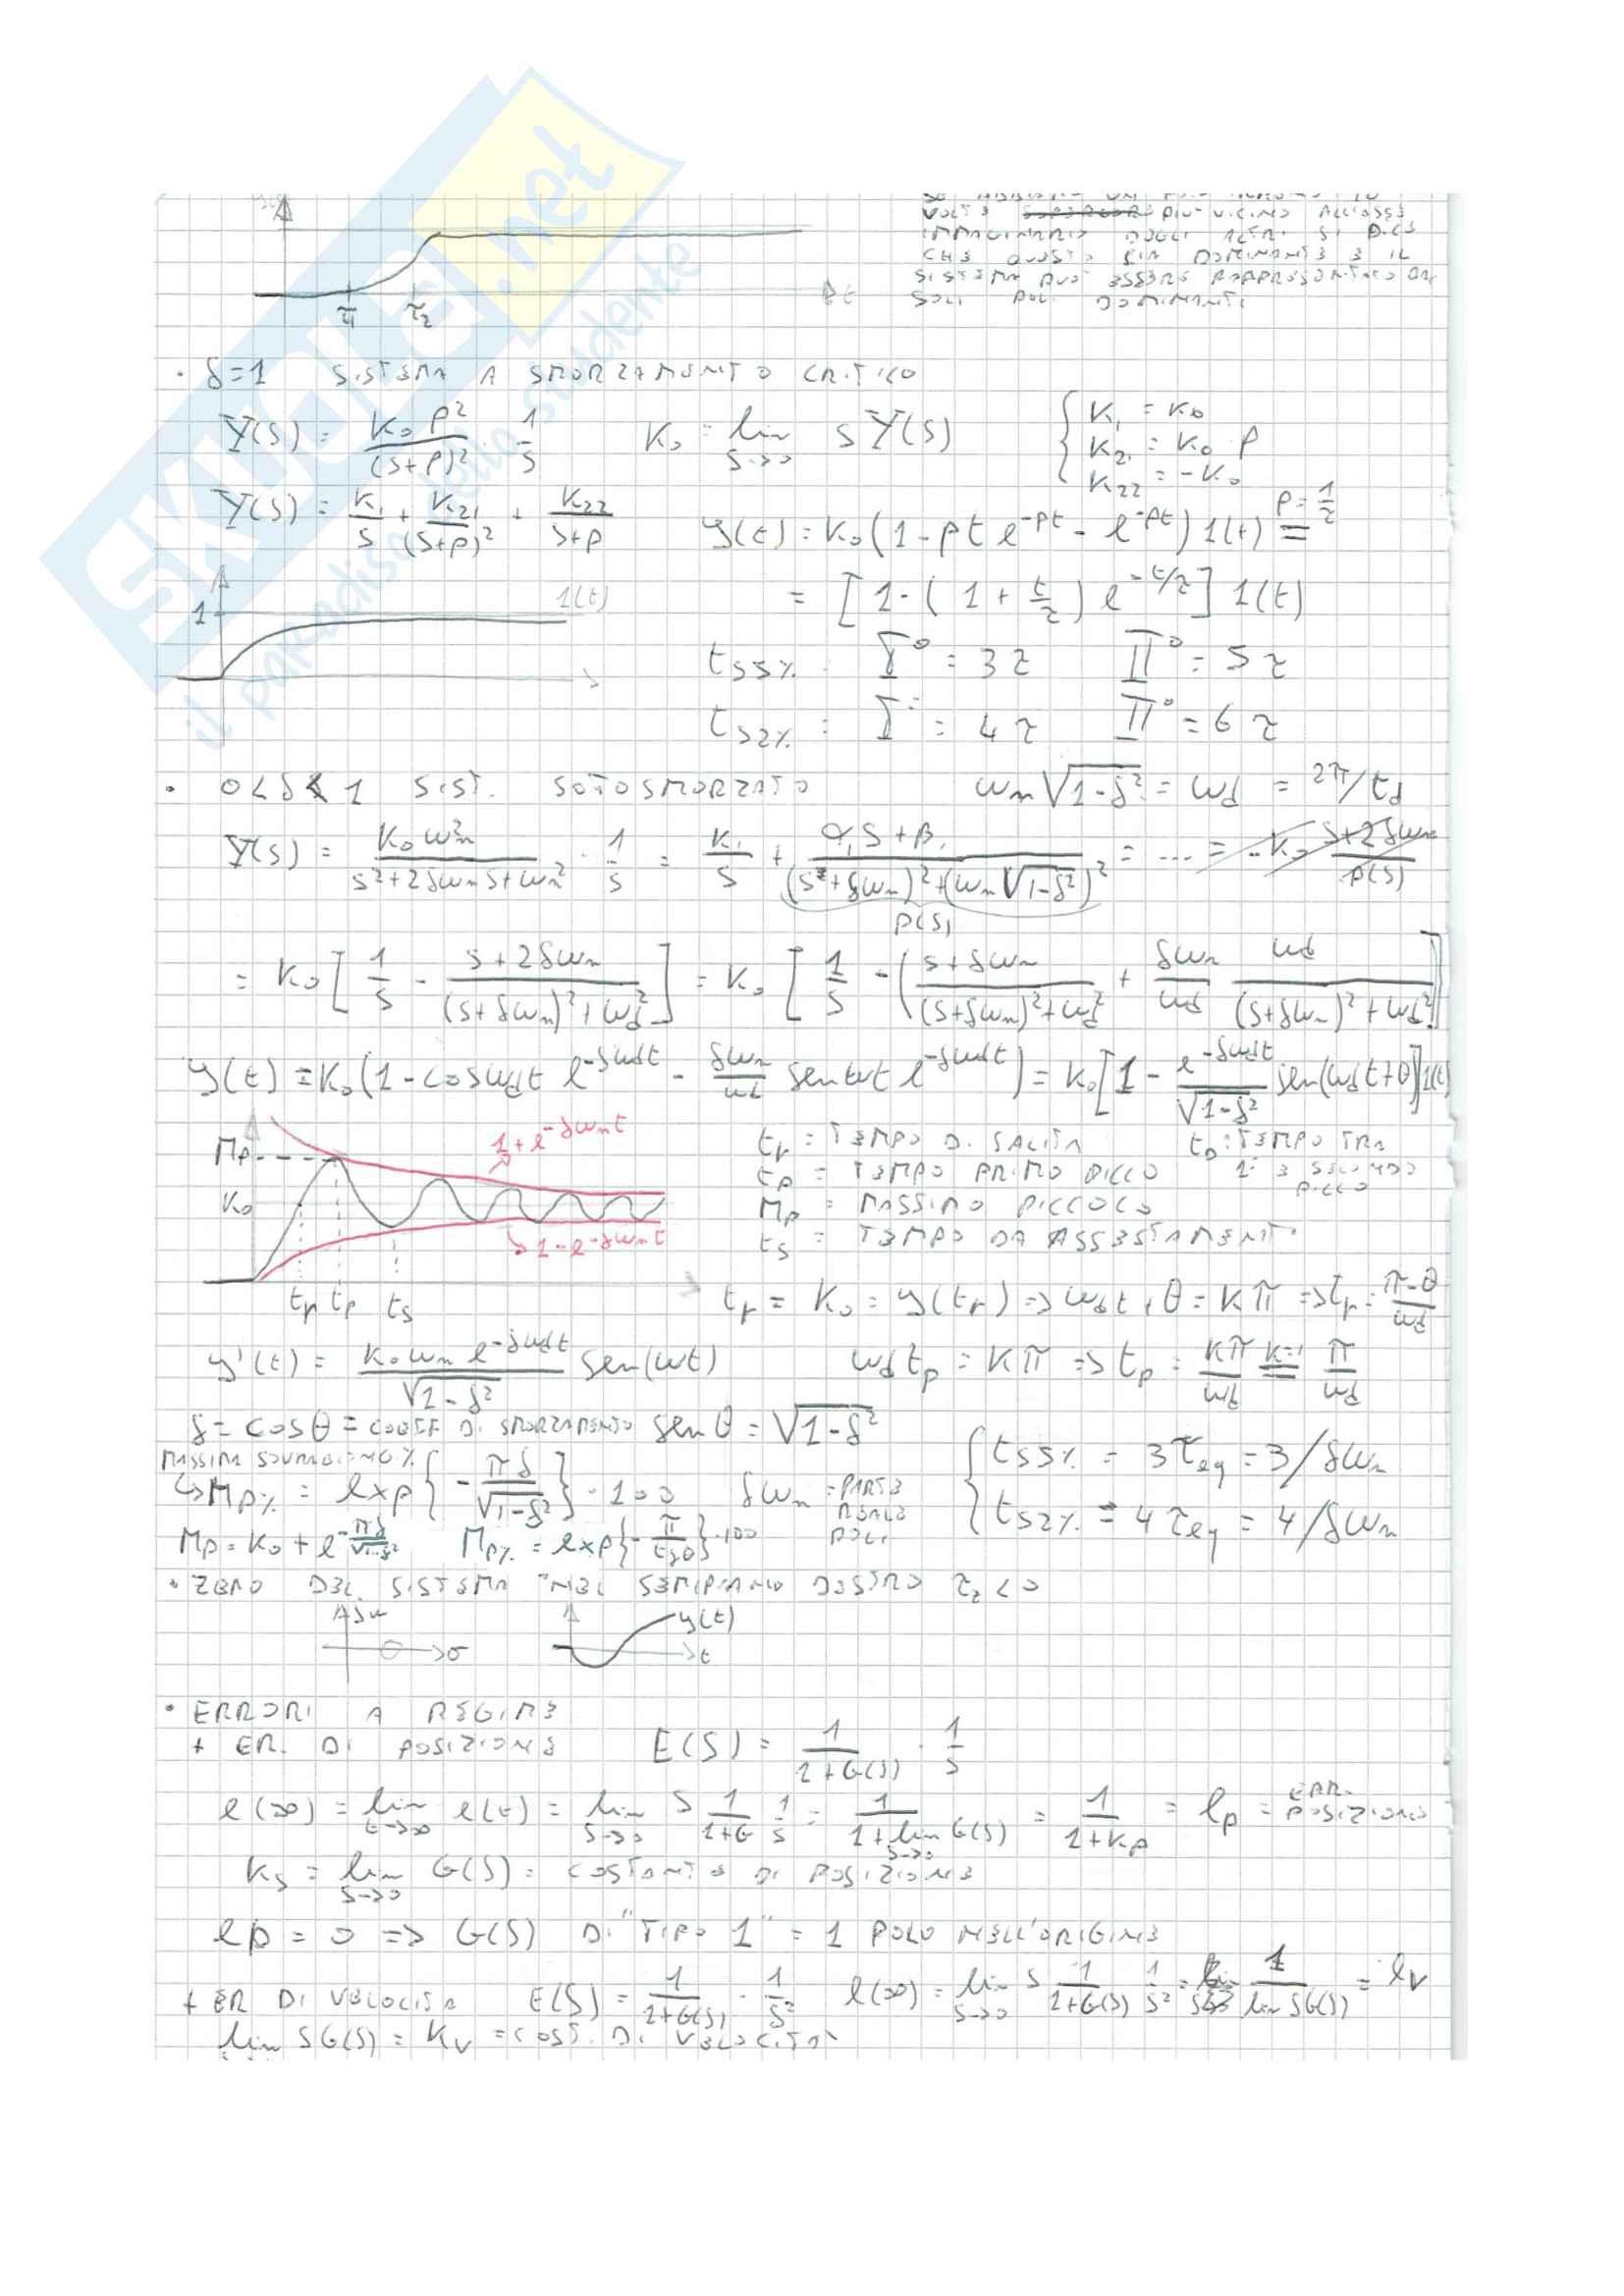 SKUOLA.net
il paradiso dello studente
SE ABBIAMO UN POLO ALMENO 10
VOLTE PIU' VICINO ALL'ASSE
IMMAGINARIO DEGLI ALTRI SI DICE
CHE QUESTO SIA DOMINANTE E IL
SISTEMA PUO' ESSERE RAPPRESENTATO DAI
SOLI POLI DOMINANTI
τ1 τ2 t
· δ=1 SISTEMA A SMORZAMENTO CRITICO
Y(s) = K0 p² / (s+p)² · 1/s K0 = lim s→0 s Y(s) { K1 = K0 K21 = K0 p K22 = -K0
Y(s) = K1/s + K21/(s+p)² + K22/(s+p) y(t) = K0 (1 - pt e^-pt - e^-pt) 1(t) = p = 1/τ
1 1(t) = [1 - (1 + t/τ) e^-t/τ] 1(t)
ts5% = I° = 3τ II° = 5τ
ts2% = I° = 4τ II° = 6τ
· 0<δ<1 SIST. SOTOSMORZATO ωn √(1-δ²) = ωd = 2π/td
Y(s) = K0 ωn² / (s²+2δωn s+ωn²) · 1/s = K1/s + (α1 s + β1) / ((s+δωn)² + (ωn √(1-δ²))²) = .... = -K0 (s+2δωn) / p(s)
p(s)
= K0 [1/s - (s+2δωn) / ((s+δωn)²+ωd²)] = K0 [1/s - ((s+δωn) / ((s+δωn)²+ωd²) + δωn/ωd ωd / ((s+δωn)²+ωd²))]
y(t) = K0 (1 - cos ωd t e^-δωdt - δωn/ωd sen ωt e^-δωdt) = K0 [1 - e^-δωdt / √(1-δ²) sen(ωd t+θ)] 1(t)
Mp K0 1+e^-δωnt 1-e^-δωnt tr tp ts
tr = TEMPO DI SALITA tD = TEMPO TRA
tp = TEMPO PRIMO PICCO 1° E SECONDO PICCO
Mp = MASSIMO PICCOLO
ts = TEMPO DA ASSESTAMENTO
tr = K0 = y(tr) => ωd t + θ = Kπ => tr = (π-θ)/ωd
y'(t) = K0 ωn e^-δωdt / √(1-δ²) sen(ωt) ωd tp = Kπ => tp = Kπ/ωd = K=1 π/ωd
δ = cos θ = COEFF DI SMORZAMENTO sen θ = √(1-δ²)
MASSIMA SOVRAELONG % { ts5% = 3τeq = 3/δωn
↳ Mp% = exp{-πδ/√(1-δ²)} · 100 δωn = PARTE REALE POLI ts2% = 4τeq = 4/δωn
Mp = K0 + e^-πδ/√(1-δ²) Mp% = exp{-π/tgθ} · 100
· ZERO DEL SISTEMA NEL SEMIPIANO DESTRO τz < 0
jω σ y(t) t
· ERRORI A REGIME
+ ER. DI POSIZIONE E(S) = 1/(1+G(S)) · 1/s
e(∞) = lim t→∞ e(t) = lim s→0 s 1/(1+G) 1/s = 1/(1+lim s→0 G(S)) = 1/(1+Kp) = ep = ERR. POSIZIONE
Ks = lim s→0 G(S) = COSTANTE DI POSIZIONE
ep = 0 => G(S) DI "TIPO 1" = 1 POLO NELL'ORIGINE
+ ER DI VELOCITA E(S) = 1/(1+G(S)) · 1/s² e(∞) = lim s→0 s 1/(1+G(S)) 1/s² = 1/(lim SG(S)) = ev
lim SG(S) = Kv = COST. DI VELOCITA'